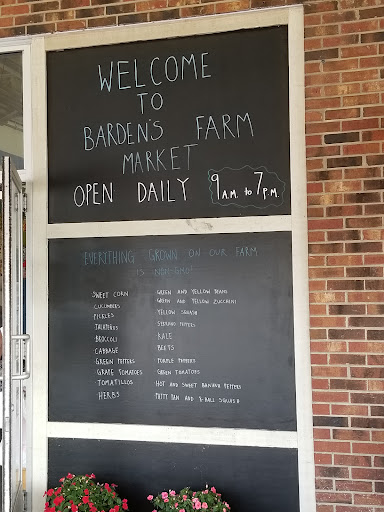 WELCOME
TO
BARDEN'S FARM
MARKET
OPEN DAILY 9A.M. to 7P.M.
EVERYTHING GROWN ON OUR FARM
IS NON-GMO!
SWEET CORN
CUCUMBERS
PICKLES
JALAPENOS
BROCCOLI
CABBAGE
GREEN PEPPERS
GRAPE TOMATOES
TOMATILLOS
HERBS
GREEN AND YELLOW BEANS
GREEN AND YELLOW ZUCCHINI
YELLOW SQUASH
SERRANO PEPPERS
KALE
BEETS
PURPLE PEPPERS
GREEN TOMATOES
HOT AND SWEET BANANA PEPPERS
PATTY PAN AND 8-BALL SQUASH